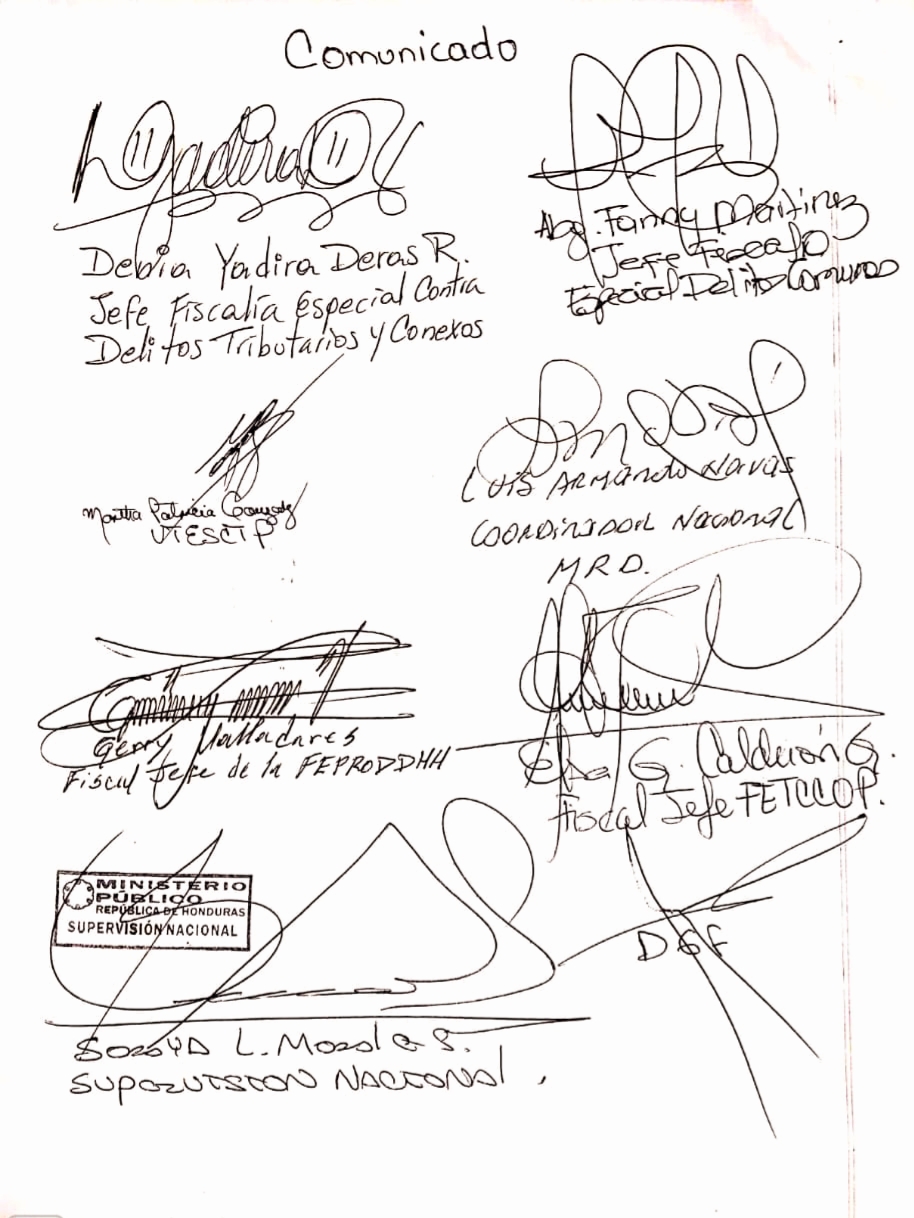 Comunicado
Yadira
Debia Yadira Deras R.
Jefe Fiscalía Especial Contra
Delitos Tributarios y Conexos
Abg. Fanny Martinez
Jefe Fiscalía
Especial Delitos Comunes
Martha Patricia Gonzalez
UTESCTP
LUIS ARMANDO NAVAS
COORDINADOR NACIONAL
MRD.
Gerry Valladares
Fiscal Jefe de la FEPRODDHH
G. Calderón G.
Fiscal Jefe FETCCOP.
MINISTERIO
PÚBLICO
REPÚBLICA DE HONDURAS
SUPERVISIÓN NACIONAL
DGF
Soraya L. Morales S.
SUPERVISION NACIONAL.